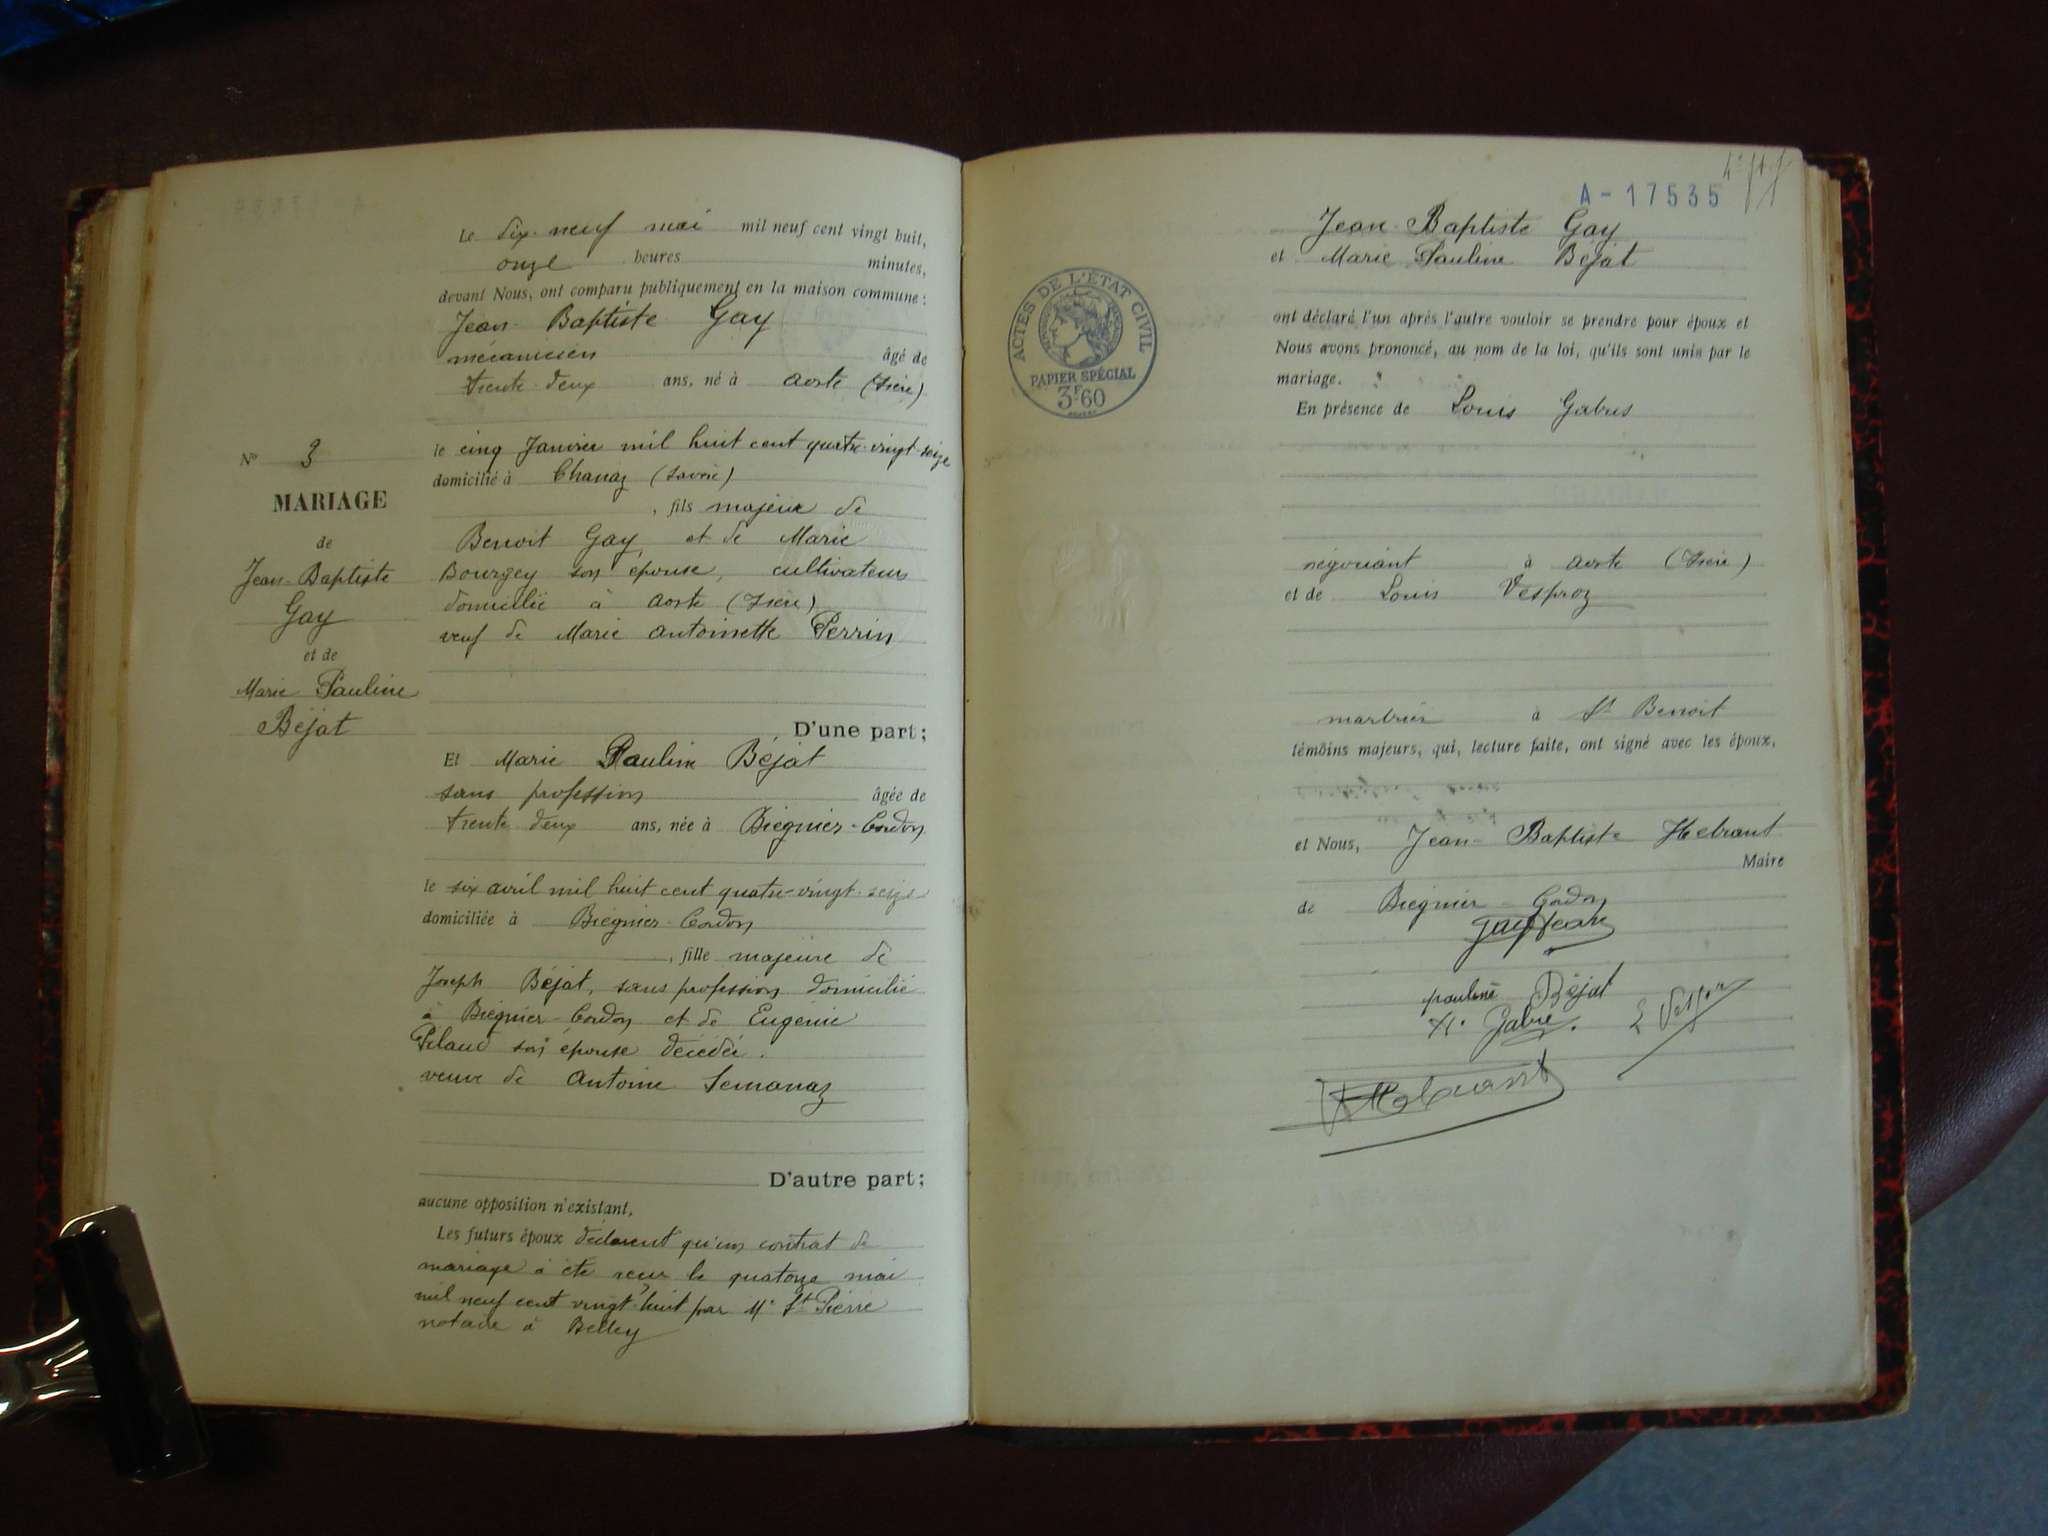 Le dix-neuf mai mil neuf cent vingt huit,
onze heures minutes,
devant Nous, ont comparu publiquement en la maison commune :
Jean-Baptiste Gay
mécanicien âgé de
trente-deux ans, né à Aoste (Isère)
le cinq Janvier mil huit cent quatre-vingt-seize
domicilié à Chanaz (Savoie)
, fils majeur de
Benoit Gay, et de Marie
Bourgey son épouse, cultivateurs
domicilié à Aoste (Isère)
veuf de Marie Antoinette Perrin
D'une part ;
N° 3
MARIAGE
de
Jean-Baptiste
Gay
et de
Marie Pauline
Béjat
Et Marie Pauline Béjat
sans profession âgée de
trente deux ans, née à Brégnier-Cordon
le six avril mil huit cent quatre-vingt-seize
domiciliée à Brégnier-Cordon
, fille majeure de
Joseph Béjat, sans profession domicilié
à Brégnier-Cordon et de Eugenie
son épouse décédée.
veuve de Antoine Semanaz
D'autre part ;
aucune opposition n'existant,
Les futurs époux déclarent qu'un contrat de
mariage a été recu le quatorze mai
mil neuf cent vingt-huit par Me St Pierre
notaire à Belley
A-17535
Jean-Baptiste Gay
et Marie Pauline Béjat
ACTES DE L'ÉTAT CIVIL
PAPIER SPÉCIAL
3F60
ont déclaré l'un après l'autre vouloir se prendre pour époux et
Nous avons prononcé, au nom de la loi, qu'ils sont unis par le
mariage.
En présence de Louis Gabus
négociant à Aoste (Isère)
et de Louis Vesproz
marbrier à St Benoit
témoins majeurs, qui, lecture faite, ont signé avec les époux,
et Nous, Jean-Baptiste Hebrant
Maire
de Brégnier-Cordon
Gay Jean
pauline Béjat